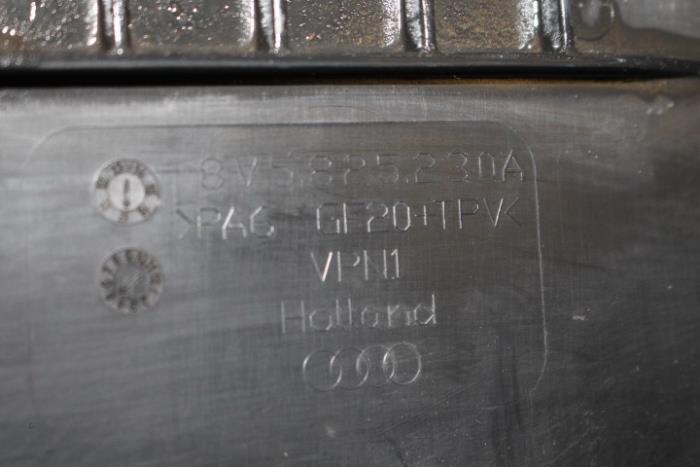 8V5.825.230A
>PA6 GF20+TPV<
VPN1
Holland